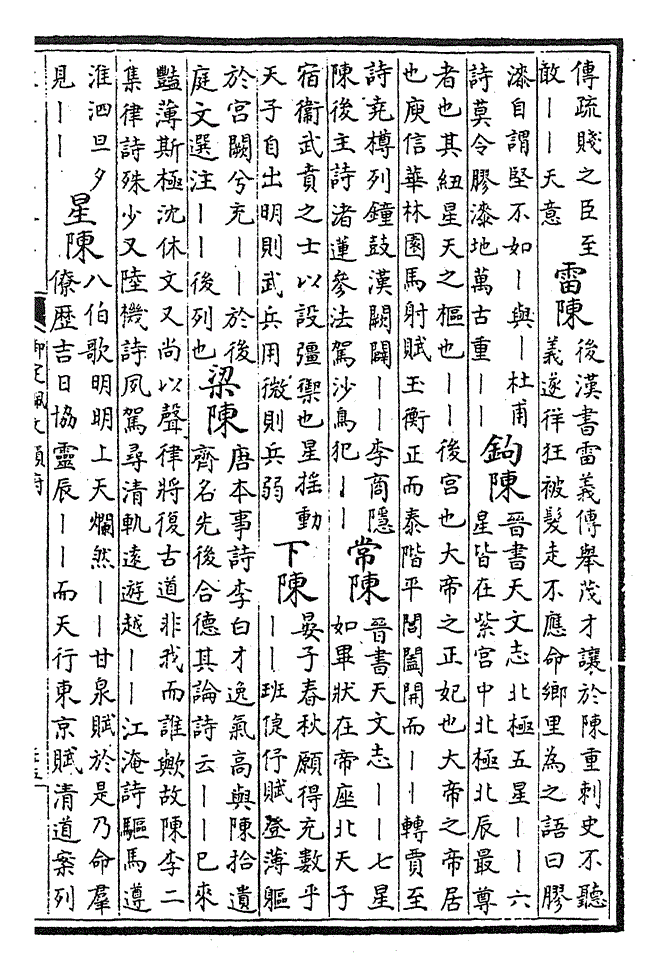 傳疏賤之臣至
敢丨丨天意
雷陳
後漢書雷義傳舉茂才讓於陳重刺史不聽
義遂徉狂被髮走不應命鄉里為之語曰膠
漆自謂堅不如丨與丨杜甫
詩莫令膠漆地萬古重丨丨
鉤陳
晉書天文志北極五星丨丨六
星皆在紫宮中北極北辰最尊
者也其紐星天之樞也丨丨後宮也大帝之正妃也大帝之帝居
也庾信華林園馬射賦玉衡正而泰階平閶闔開而丨丨轉賈至
詩堯樽列鐘鼓漢闕闢丨丨李商隱
陳後主詩渚蓮參法駕沙鳥犯丨丨
常陳
晉書天文志丨丨七星
如畢狀在帝座北天子
宿衞武賁之士以設彊禦也星搖動
天子自出明則武兵用微則兵弱
下陳
晏子春秋願得充數乎
丨丨班倢伃賦登薄軀
於宮闕兮充丨丨於後
庭文選注丨丨後列也
梁陳
唐本事詩李白才逸氣高與陳拾遺
齊名先後合德其論詩云丨丨已來
豔薄斯極沈休文又尚以聲律將復古道非我而誰歟故陳李二
集律詩殊少又陸機詩夙駕尋清軌遠遊越丨丨江淹詩驅馬遵
淮泗旦夕
見丨丨
星陳
八伯歌明明上天爛然丨丨甘泉賦於是乃命羣
僚歷吉日協靈辰丨丨而天行東京賦清道案列